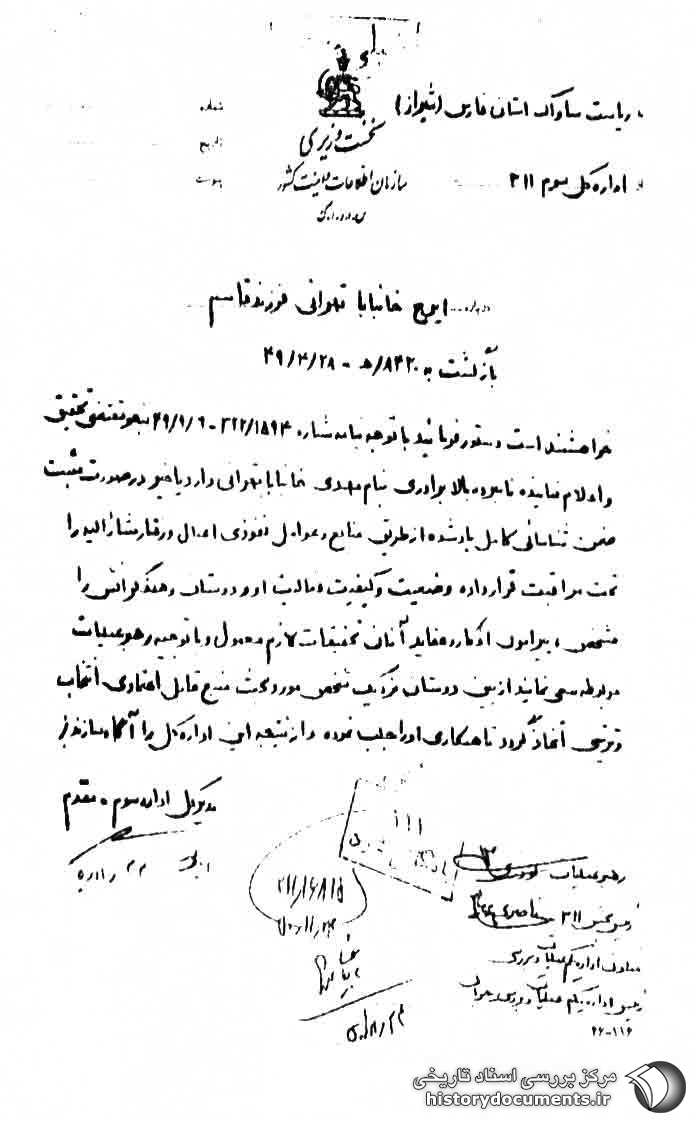 ریاست ساواک استان فارس (شیراز)
شماره
نخست وزیری
تاریخ
اداره کل سوم ۳۱۱
سازمان اطلاعات و امنیت کشور
پیوست
س.ا.و.ا.ک
درباره ایرج خانبابا تهرانی فرزند قاسم
بازگشت به ۸۴۲۰/ﻫ - ۴۹/۴/۲۸
خواهشمند است دستور فرمائید با توجه بنامه شماره ۳۲۲/۱۵۹۴ - ۴۹/۱/۶ بنحو مقتضی تحقیق
و اعلام نمایند نامبرده بالا برادری بنام مهدی خانبابا تهرانی دارد یا خیر در صورت مثبت
ضمن شناسائی کامل یادشده از طریق منابع و عوامل نفوذی اعمال و رفتار مشارالیه را
تحت مراقبت قرار داده وضعیت و کیفیت فعالیت او و دوستان و همفکرانش را
مشخص ، پیرامون افکار و عقاید آنان تحقیقات لازم معمول و با توجیه رهبر عملیات
مربوطه سعی نمایند از بین دوستان نزدیک شخص مورد بحث منبع قابل اعتمادی انتخاب
و ترتیبی اتخاذ گردد تا همکاری او را جلب نموده و از نتیجه این اداره کل را آگاه سازند
مدیر کل اداره سوم . مقدم
۳۱۱
رهبر عملیات
رئیس بخش ۳۱۱ ناصری
معاون اداره یکم عملیات و بررسی
رئیس اداره یکم عملیات و بررسی
۴۶-۱۱۶
مرکز بررسی اسناد تاریخی
historydocuments.ir